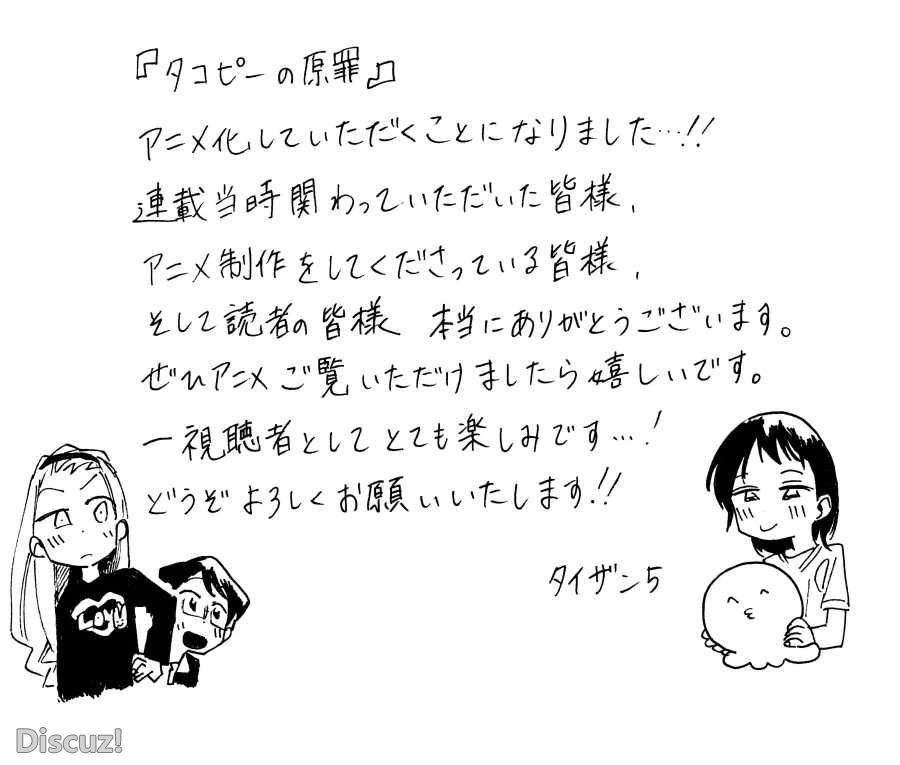 『タコピーの原罪』
アニメ化していただくことになりました…!!
連載当時関わっていただいた皆様、
アニメ制作をしてくださっている皆様、
そして読者の皆様 本当にありがとうございます。
ぜひアニメご覧いただけましたら嬉しいです。
一視聴者としてとても楽しみです…!
どうぞよろしくお願いいたします!!
タイザン5
LOVE
Discuz!